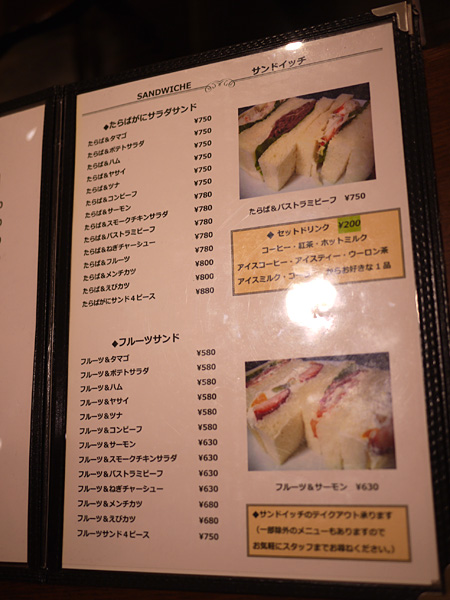 SANDWICHE サンドイッチ
◆たらばがにサラダサンド
たらば&タマゴ ¥750
たらば&ポテトサラダ ¥750
たらば&ハム ¥750
たらば&ヤサイ ¥750
たらば&ツナ ¥750
たらば&コンビーフ ¥780
たらば&サーモン ¥780
たらば&スモークチキンサラダ ¥780
たらば&パストラミビーフ ¥780
たらば&ねぎチャーシュー ¥780
たらば&フルーツ ¥800
たらば&メンチカツ ¥800
たらば&えびカツ ¥800
たらばがにサンド4ピース ¥880
たらば&パストラミビーフ ¥750
◆ セットドリンク ¥200
コーヒー・紅茶・ホットミルク
アイスコーヒー・アイスティー・ウーロン茶
アイスミルク・コーラ からお好きな1品
◆フルーツサンド
フルーツ&タマゴ ¥580
フルーツ&ポテトサラダ ¥580
フルーツ&ハム ¥580
フルーツ&ヤサイ ¥580
フルーツ&ツナ ¥580
フルーツ&コンビーフ ¥580
フルーツ&サーモン ¥630
フルーツ&スモークチキンサラダ ¥630
フルーツ&パストラミビーフ ¥630
フルーツ&ねぎチャーシュー ¥630
フルーツ&メンチカツ ¥680
フルーツ&えびカツ ¥680
フルーツサンド4ピース ¥750
フルーツ&サーモン ¥630
◆サンドイッチのテイクアウト承ります
(一部除外のメニューもありますので
お気軽にスタッフまでお尋ねください。)